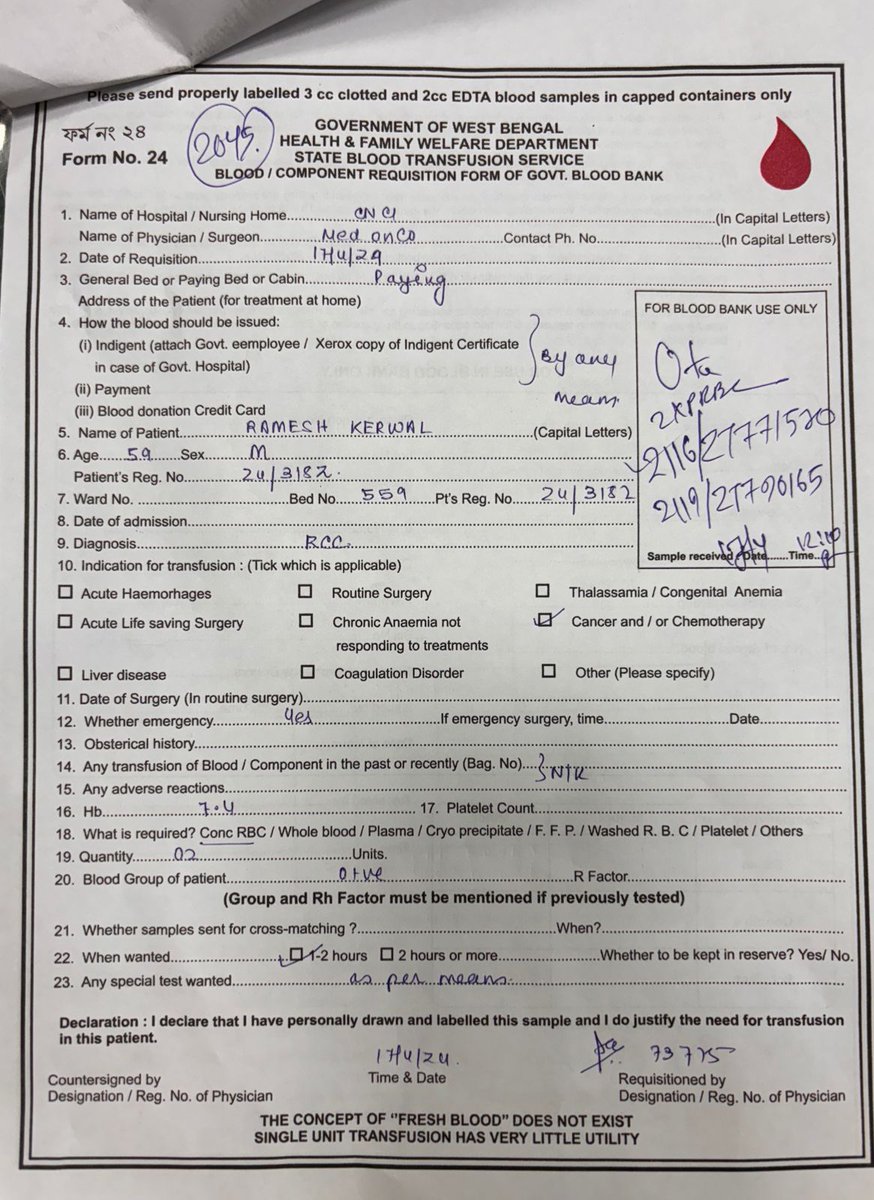 Please send properly labelled 3 cc clotted and 2cc EDTA blood samples in capped containers only
ফর্ম নং ২৪
Form No. 24
2045.
GOVERNMENT OF WEST BENGAL
HEALTH & FAMILY WELFARE DEPARTMENT
STATE BLOOD TRANSFUSION SERVICE
BLOOD / COMPONENT REQUISITION FORM OF GOVT. BLOOD BANK
1. Name of Hospital / Nursing Home CNCI (In Capital Letters)
Name of Physician / Surgeon Med onco Contact Ph. No. (In Capital Letters)
2. Date of Requisition 17/4/24
3. General Bed or Paying Bed or Cabin Paying
Address of the Patient (for treatment at home)
4. How the blood should be issued:
(i) Indigent (attach Govt. eemployee / Xerox copy of Indigent Certificate
in case of Govt. Hospital)
(ii) Payment
(iii) Blood donation Credit Card
By any
means.
5. Name of Patient RAMESH KERWAL (Capital Letters)
6. Age 59 Sex M
Patient's Reg. No. 24/3182.
7. Ward No. Bed No. 559 Pt's Reg. No. 24/3182
8. Date of admission
9. Diagnosis RCC.
FOR BLOOD BANK USE ONLY
2XPRBC
2116/2T771520
2119/2T790165
Sample received Date Time
10. Indication for transfusion : (Tick which is applicable)
Acute Haemorhages Routine Surgery Thalassamia / Congenital Anemia
Acute Life saving Surgery Chronic Anaemia not responding to treatments Cancer and / or Chemotherapy
Liver disease Coagulation Disorder Other (Please specify)
11. Date of Surgery (In routine surgery)
12. Whether emergency yes If emergency surgery, time Date
13. Obsterical history
14. Any transfusion of Blood / Component in the past or recently (Bag. No)
15. Any adverse reactions
N/K
16. Hb 7.4 17. Platelet Count
18. What is required? Conc RBC / Whole blood / Plasma / Cryo precipitate / F. F. P. / Washed R. B. C / Platelet / Others
19. Quantity 02 Units.
20. Blood Group of patient O+ve R Factor
(Group and Rh Factor must be mentioned if previously tested)
21. Whether samples sent for cross-matching ? When?
22. When wanted 1-2 hours 2 hours or more Whether to be kept in reserve? Yes/ No.
23. Any special test wanted as per means.
Declaration : I declare that I have personally drawn and labelled this sample and I do justify the need for transfusion
in this patient.
17/4/24. 73775
Countersigned by Time & Date Requisitioned by
Designation / Reg. No. of Physician Designation / Reg. No. of Physician
THE CONCEPT OF "FRESH BLOOD" DOES NOT EXIST
SINGLE UNIT TRANSFUSION HAS VERY LITTLE UTILITY